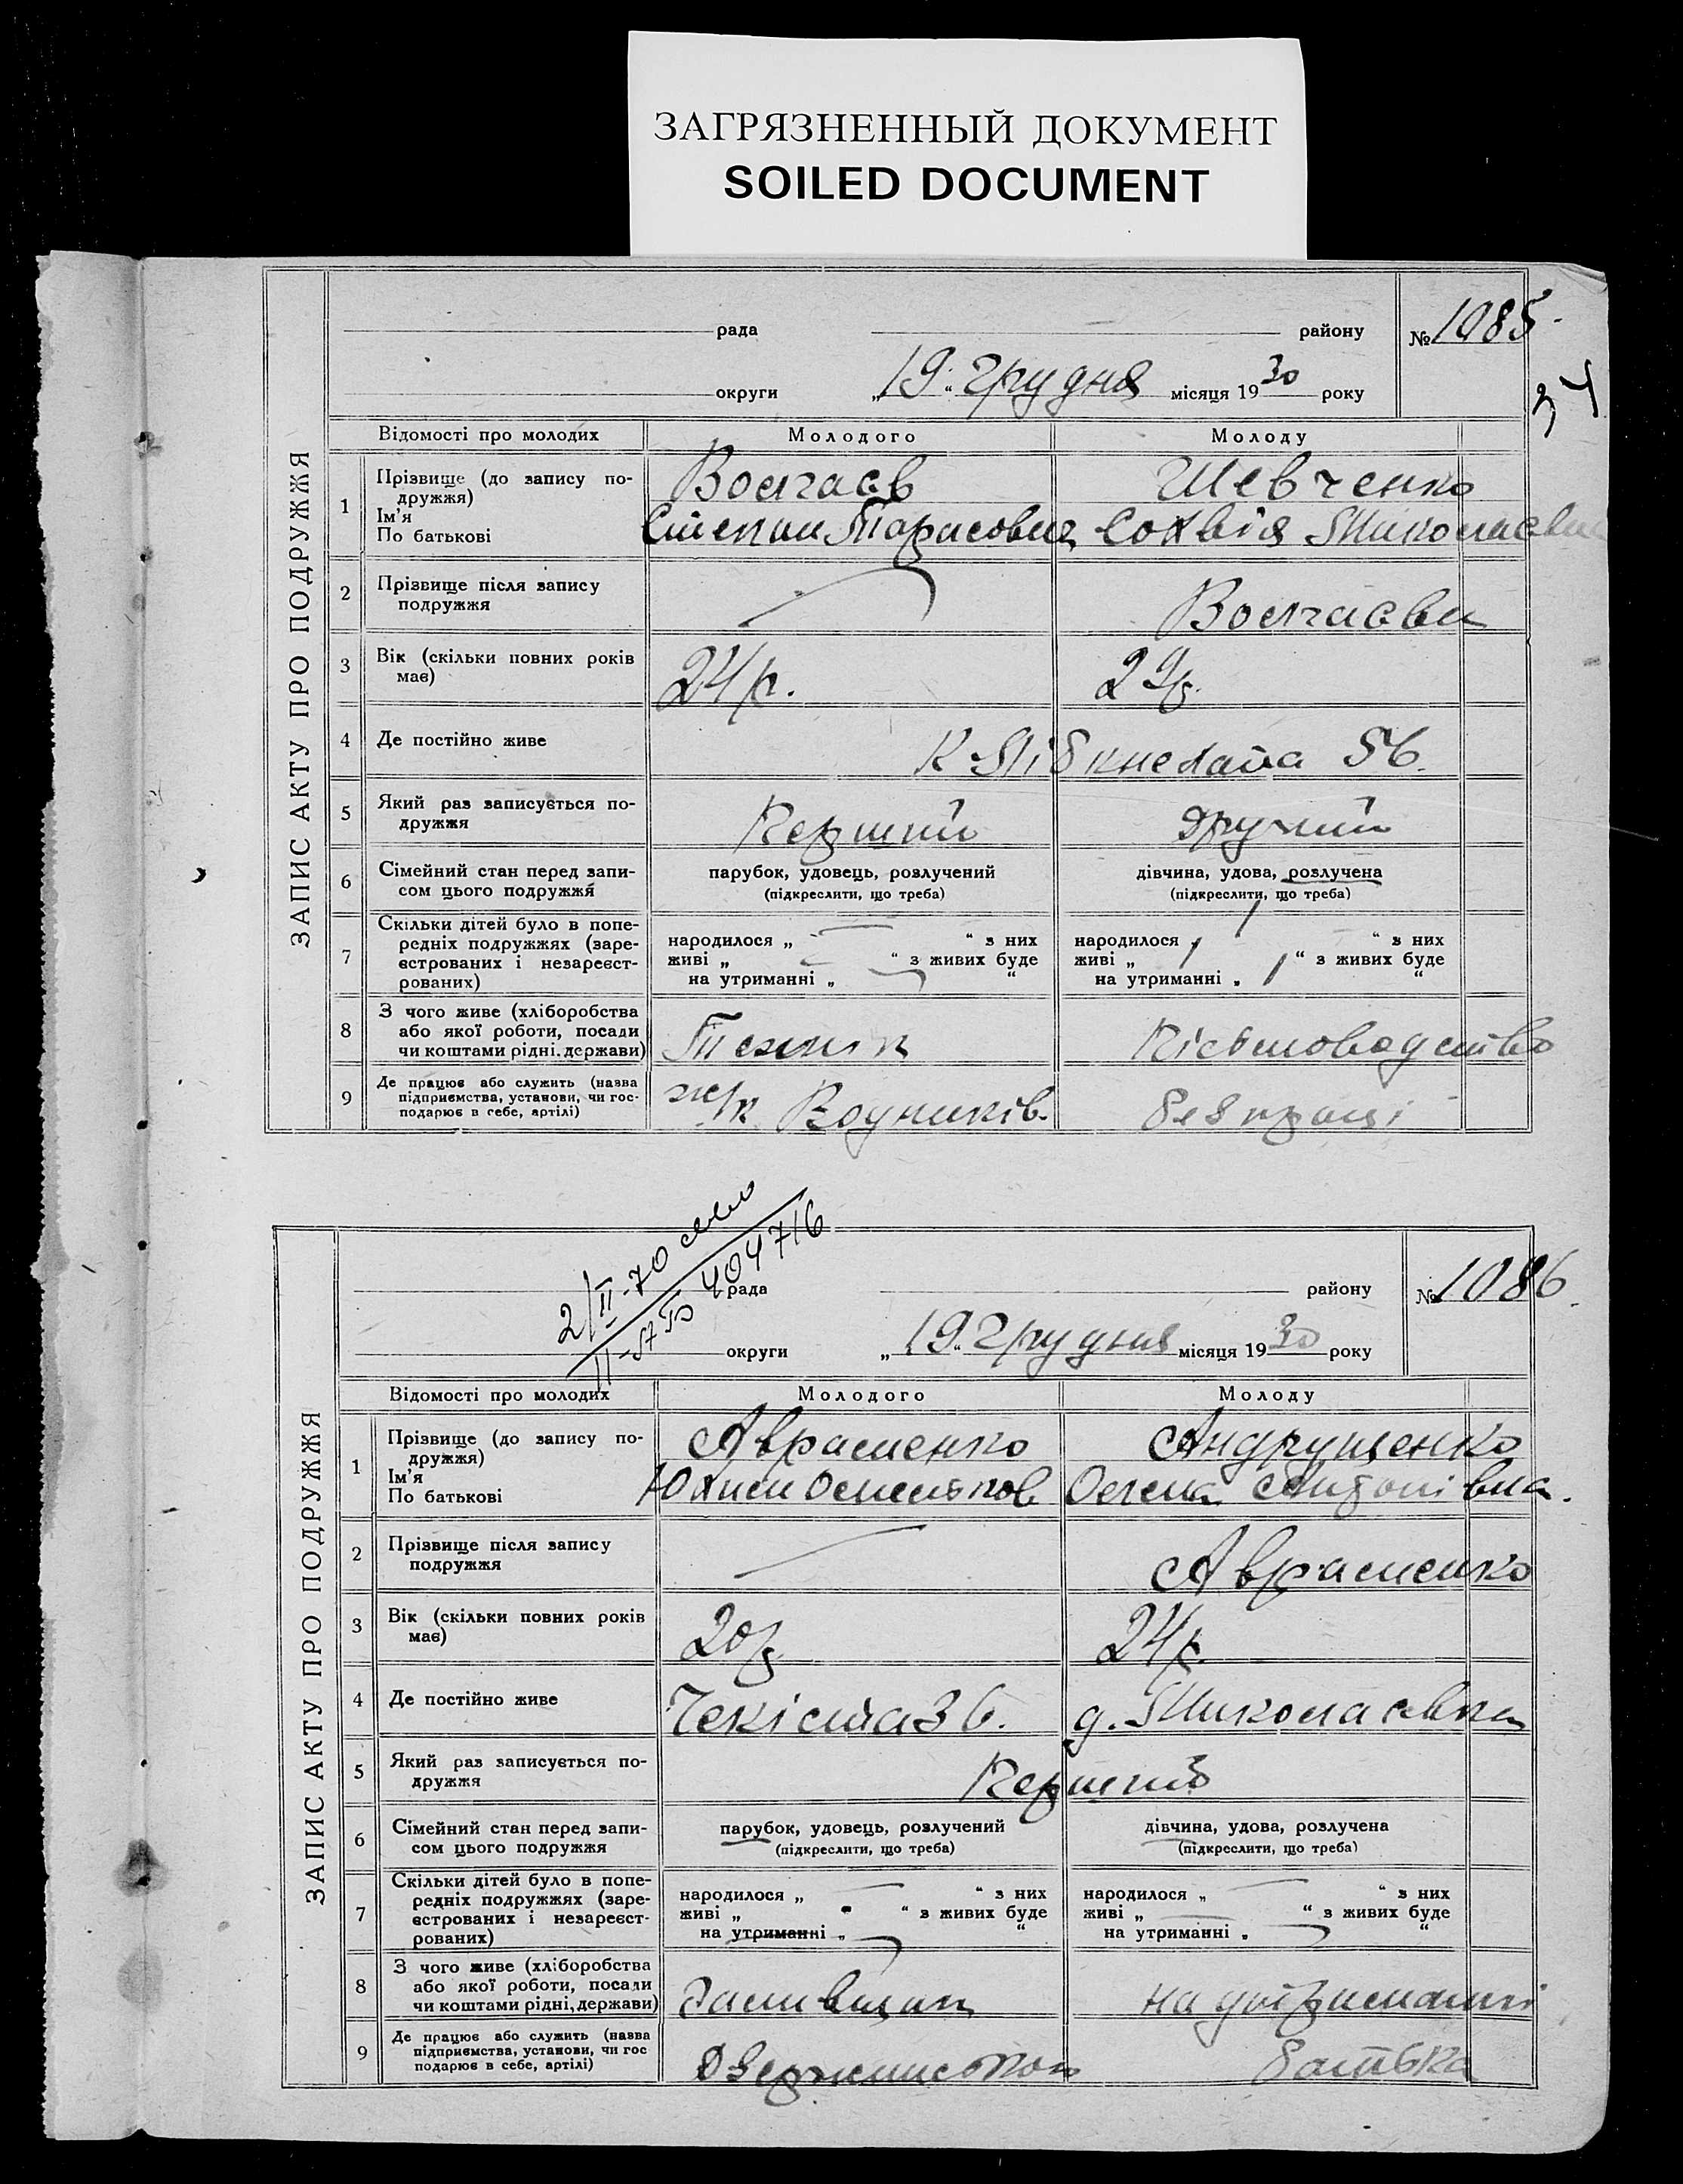 ЗАГРЯЗНЕННЫЙ ДОКУМЕНТ
SOILED DOCUMENT
ЗАПИС АКТУ ПРО ПОДРУЖЖЯ
рада району № 1085
округи „19“ Грудня місяця 1930 року
34
Відомості про молодих Молодого Молоду
1 Прізвище (до запису по-
дружжя) Волгаєв Шевченко
Ім'я
По батькові Степан Тарасович Софвія Миколаєвн
2 Прізвище після запису
подружжя Волгаєва
3 Вік (скільки повних років
має) 24 р. 29 р.
4 Де постійно живе К. Лібкнехата 56.
5 Який раз записується по-
дружжя Перший Другий
6 Сімейний стан перед запи-
сом цього подружжя
парубок, удовець, розлучений
(підкреслити, що треба)
дівчина, удова, розлучена
(підкреслити, що треба)
7 Скільки дітей було в попе-
редніх подружжях (заре-
єстрованих і незареєст-
рованих)
народилося „ “ з них
живі „ “ з живих буде
на утриманні „ “
народилося „ 1 “ з них
живі „ 1 “ з живих буде
на утриманні „ 1 “
8 З чого живе (хліборобства
або якої роботи, посади
чи коштами рідні. держави) Технік Пісьмоводство
9 Де працює або служить (назва
підприємства, установи, чи гос-
подарює в себе, артілі) ж/к Водників. без праці
2/II-70
II-ЯБ 404716
ЗАПИС АКТУ ПРО ПОДРУЖЖЯ
рада району № 1086.
округи „19“ Грудня місяця 1930 року
Відомості про молодих Молодого Молоду
1 Прізвище (до запису по-
дружжя) Авраменко Андрущенко
Ім'я
По батькові Юхим Омельков Олена Антонівна.
2 Прізвище після запису
подружжя Авраменко
3 Вік (скільки повних років
має) 20 р. 24 р.
4 Де постійно живе Чекіста 36. д. Миколаєвка
5 Який раз записується по-
дружжя Перший
6 Сімейний стан перед запи-
сом цього подружжя
парубок, удовець, розлучений
(підкреслити, що треба)
дівчина, удова, розлучена
(підкреслити, що треба)
7 Скільки дітей було в попе-
редніх подружжях (заре-
єстрованих і незареєст-
рованих)
народилося „ “ з них
живі „ “ з живих буде
на утриманні „ “
народилося „ “ з них
живі „ “ з живих буде
на утриманні „ “
8 З чого живе (хліборобства
або якої роботи, посади
чи коштами рідні, держави) на утриманні
9 Де працює або служить (назва
підприємства, установи, чи гос
подарює в себе, артілі) батька